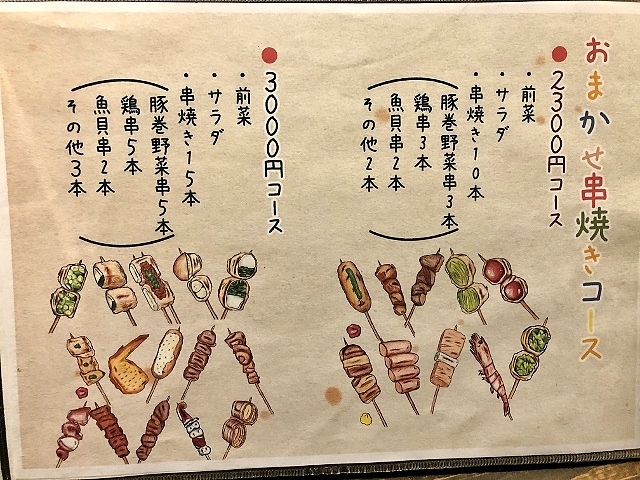 おまかせ串焼きコース
●2300円コース
・前菜
・サラダ
・串焼き10本
(豚巻野菜串3本
鶏串3本
魚貝串2本
その他2本)
●3000円コース
・前菜
・サラダ
・串焼き15本
(豚巻野菜串5本
鶏串5本
魚貝串2本
その他3本)